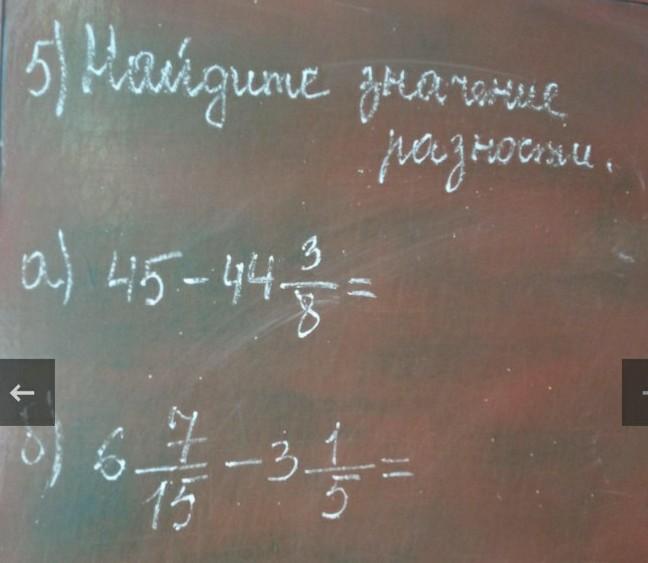 5) Найдите значение
разности.
а) 45 - 44 3/8 =
б) 6 7/15 - 3 1/5 =